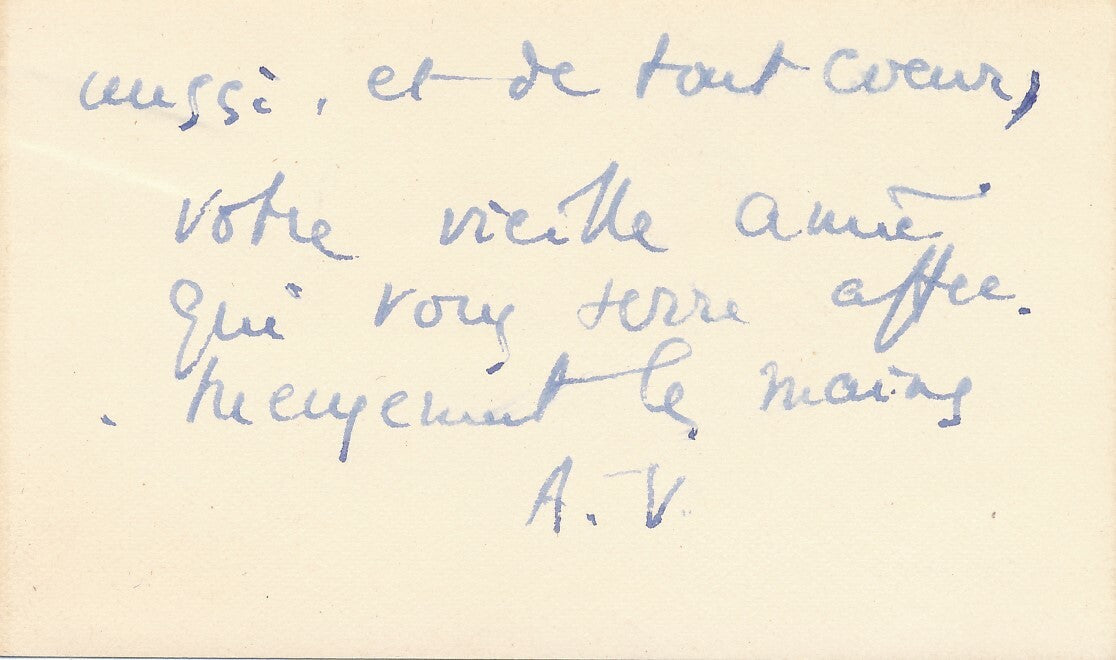 aussi, et de tout coeur,
votre vieille amie
qui vous serre affec.
. tueusement les mains
A. V.